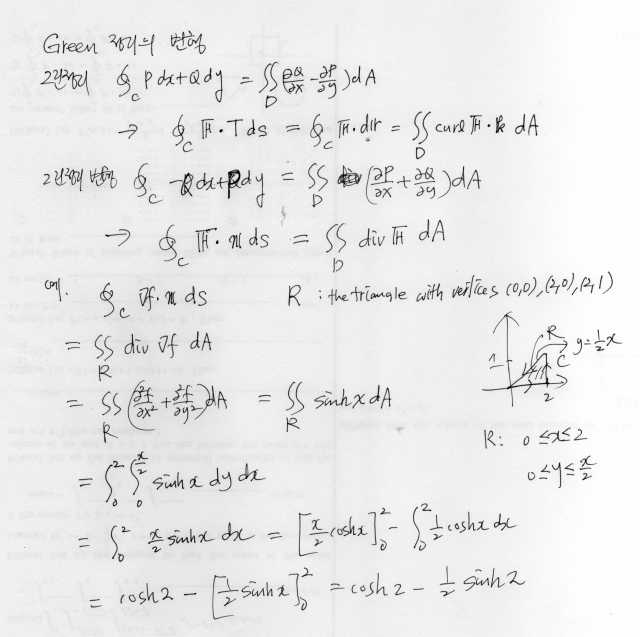 Green 정리의 변형
그린정리 ∮_C P dx + Q dy = ∬_D (∂Q/∂x - ∂P/∂y) dA
→ ∮_C 𝔽·T ds = ∮_C 𝔽·d𝕣 = ∬_D curl 𝔽·𝕜 dA
그린정리 변형 ∮_C -Q dx + P dy = ∬_D (∂P/∂x + ∂Q/∂y) dA
→ ∮_C 𝔽·𝕟 ds = ∬_D div 𝔽 dA
∮_C ∇f·𝕟 ds R : the triangle with vertices (0,0), (2,0), (2,1)
= ∬_R div ∇f dA
R y=½x
1 C
2
= ∬_R (∂²f/∂x² + ∂²f/∂y²) dA = ∬_R sinh x dA
R: 0≤x≤2
0≤y≤x/2
= ∫_0^2 ∫_0^{x/2} sinh x dy dx
= ∫_0^2 x/2 sinh x dx = [x/2 cosh x]_0^2 - ∫_0^2 ½ cosh x dx
= cosh 2 - [½ sinh x]_0^2 = cosh 2 - ½ sinh 2